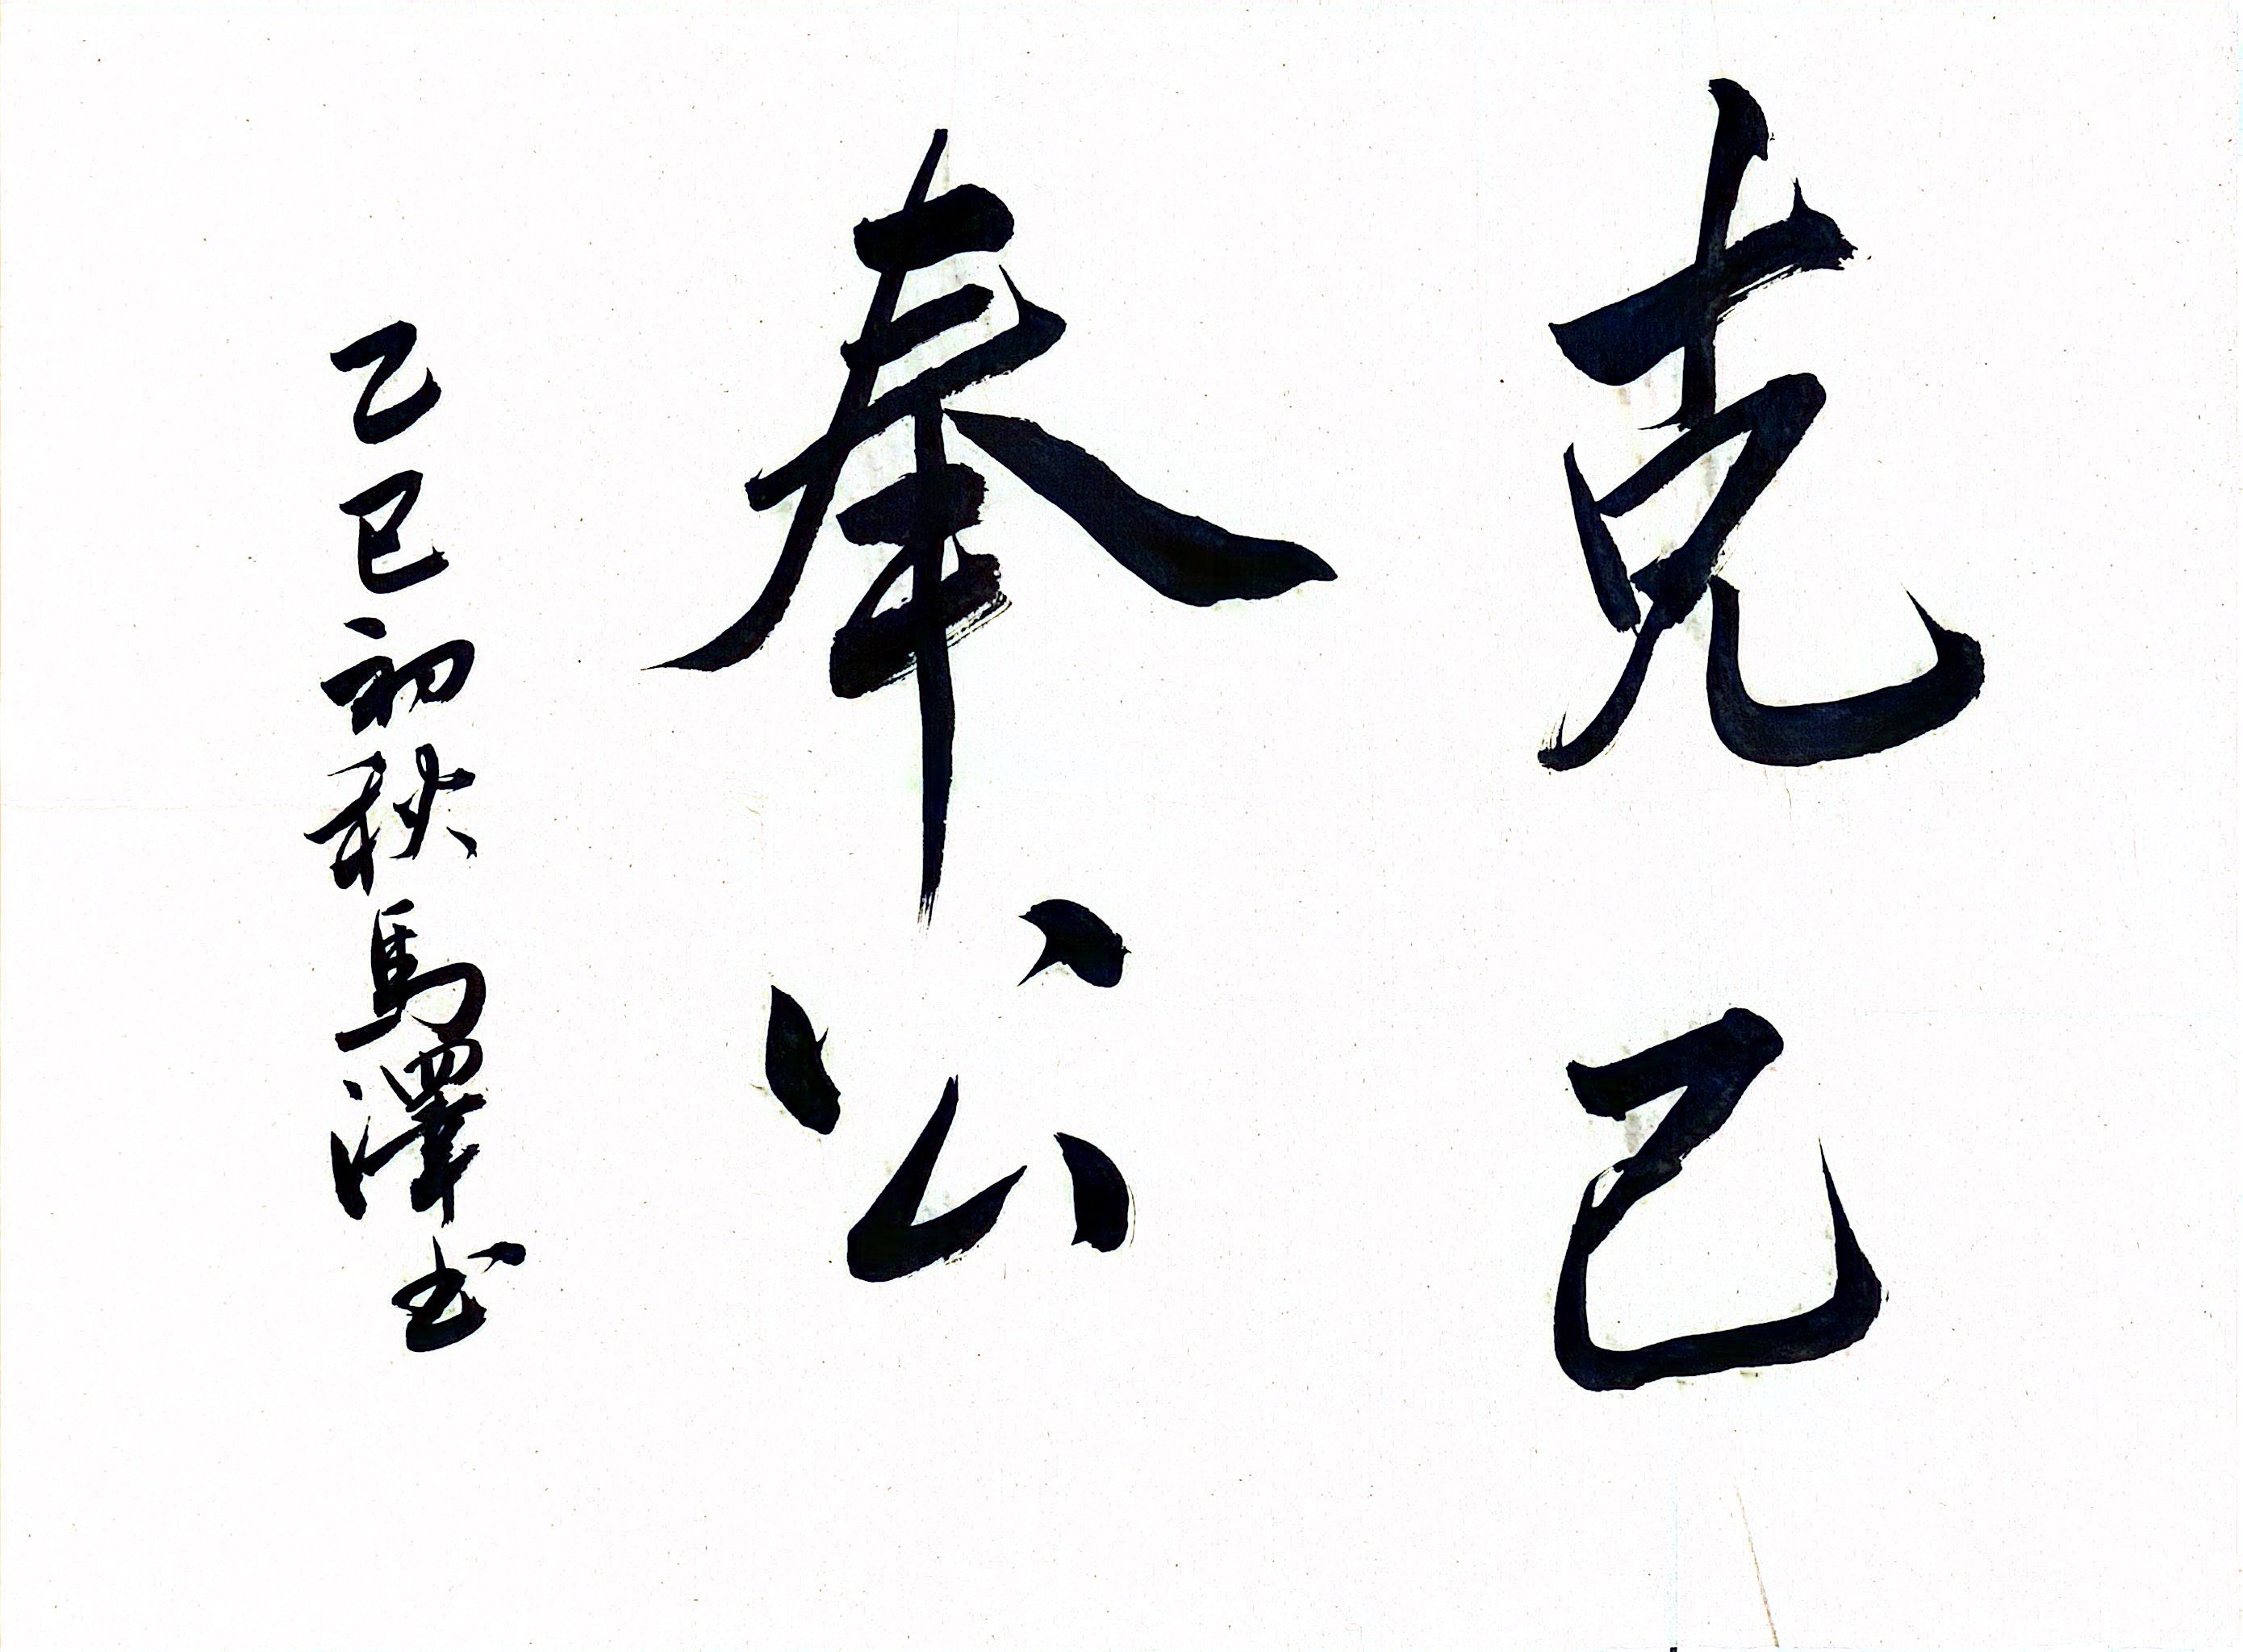 克己
奉公
乙巳初秋馬澤书